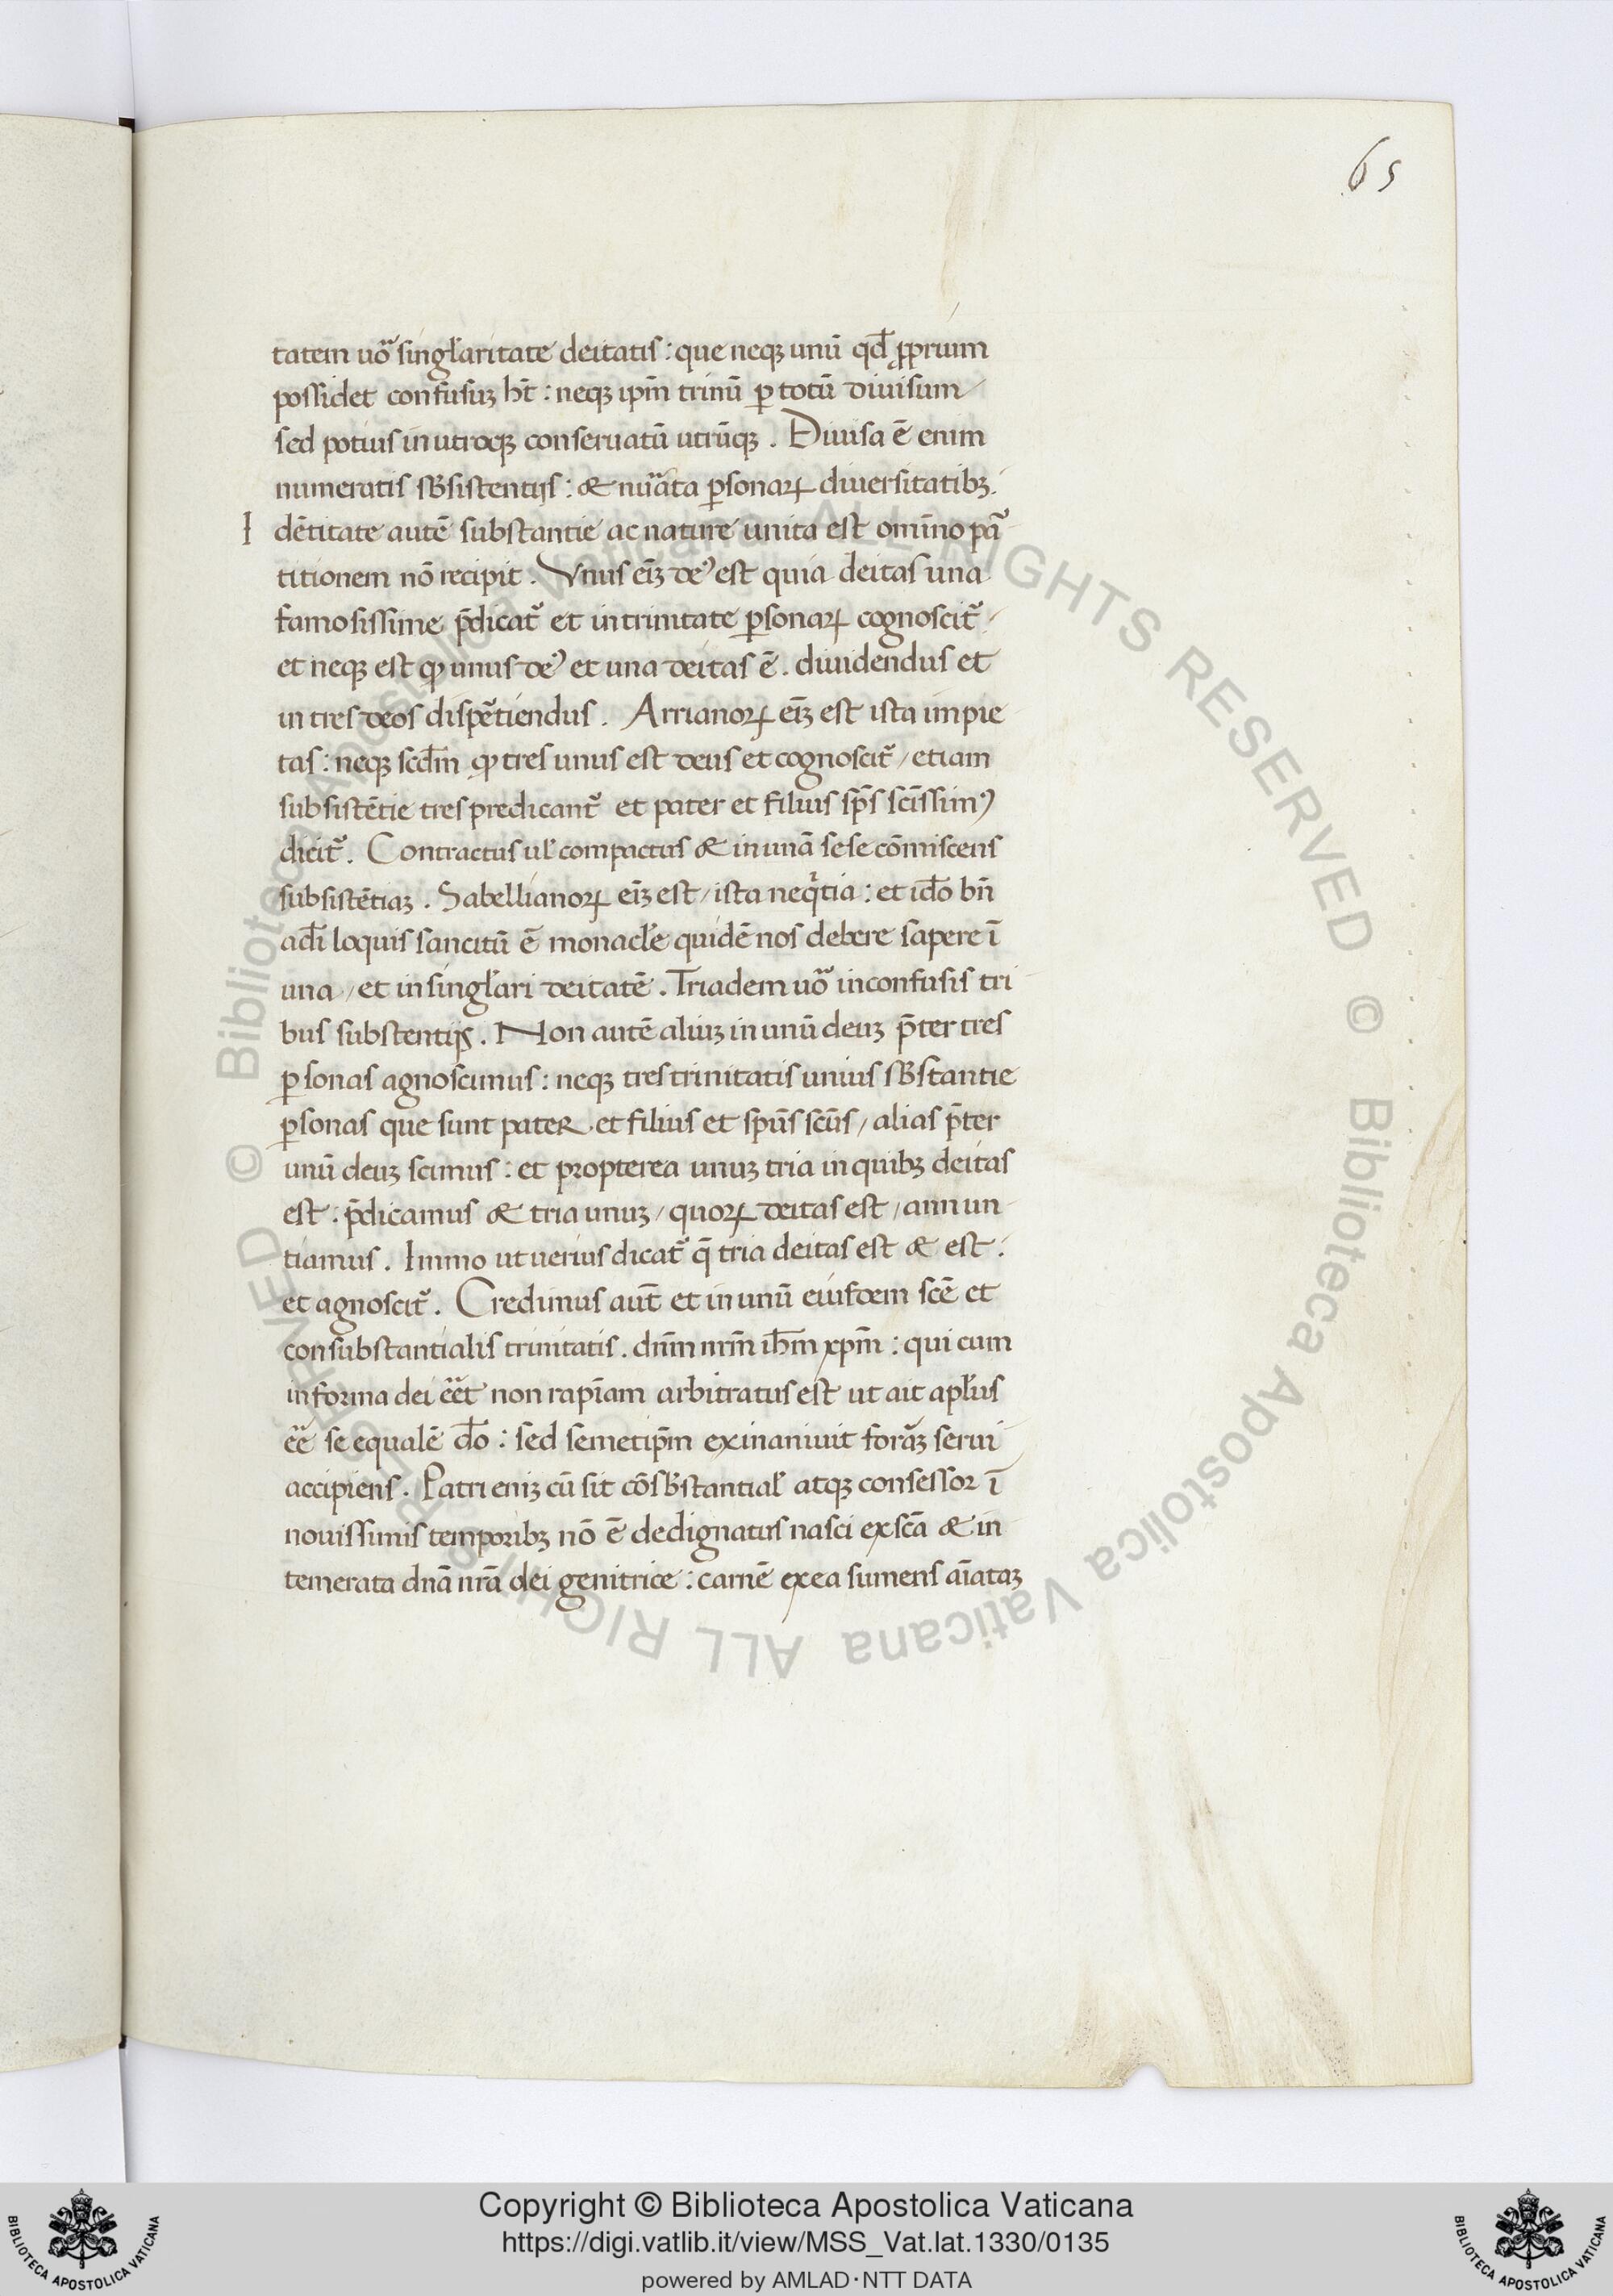 65
tatem uo᷑ singl̃aritate deitatis : que neqꝫ unū qđ ꝓprium
possidet confusuꝫ hr̃t : neqꝫ ip̃m trinū ꝑ totū diuisum /
sed potius in utroqꝫ conseruatū utrūqꝫ . Diuisa ē enim
numeratis sb̃sistentijs : & nũata ꝑsonaꝝ diuersitatibꝫ .
I dētitate autē substantie ac nature unita est om̄ino pa᷑
titionem nō recipit . Vnus eīꝫ deꝰ est quia deitas una
famosissime p̄dicat᷑ et in trinitate ꝑsonaꝝ cognoscit᷑ /
et neqꝫ est ꝙ unus deꝰ et una deitas ē . diuidendus et
in tres deos disꝑtiendus . Arrianoꝝ eīꝫ est ista impie
tas : neqꝫ scđm ꝙ tres unus est deus et cognoscit᷑ / etiam
subsistētie tres predicant᷑ et pater et filius sp̃s scīssimꝰ
dicit᷑ . Contractus ul̃ compactus & in unā sese cōmiscens
subsistētiaꝫ . Sabellianoꝝ eīꝫ est / ista neqͥtia : et iđo bñ
ađi loquis sancitū ē monacl̃e quidē nos debere sapere ī
una / et in singl̃ari deitatē . Triadem uo᷑ inconfusis tri
bus substentijs . Non autē aliuꝫ in unū deuꝫ p̄ter tres
ꝑsonas agnoscimus : neqꝫ tres trinitatis unius sb̃stantie
ꝑsonas que sunt pateR et filius et spūs scūs / alias p̄ter
unū deuꝫ scimus : et propterea unuꝫ tria in quibꝫ deitas
est : p̄dicamus & tria unuꝫ / quoꝝ deitas est / annun
tiamus . Immo ut uerius dicat᷑ q̄ tria deitas est & est .
et agnoscit᷑ . Credimus aut̄ et in unū eiusdem scē et
consubstantialis trinitatis . dn̄m nr̄m ih̄m xp̄m : qui cum
in forma dei eēt non rapīam arbitratus est ut ait apl̃us
eē se equalē đo : sed semetip̄m exinaniuit forᷓꝫ serui
accipiens . Patri eniꝫ cū sit cōsb̃stantial̃ atqꝫ consessor ī
nouissimis temporibꝫ nō ē dedignatus nasci ex scā & in
temerata dnā nr̄a dei genitrice : carnē ex ea sumens aīataꝫ
© Biblioteca Apostolica Vaticana ALL RIGHTS RESERVED © Biblioteca Apostolica Vaticana ALL RIGHTS RESERVED
BIBLIOTECA APOSTOLICA VATICANA
Copyright © Biblioteca Apostolica Vaticana
https://digi.vatlib.it/view/MSS_Vat.lat.1330/0135
powered by AMLAD·NTT DATA
BIBLIOTECA APOSTOLICA VATICANA